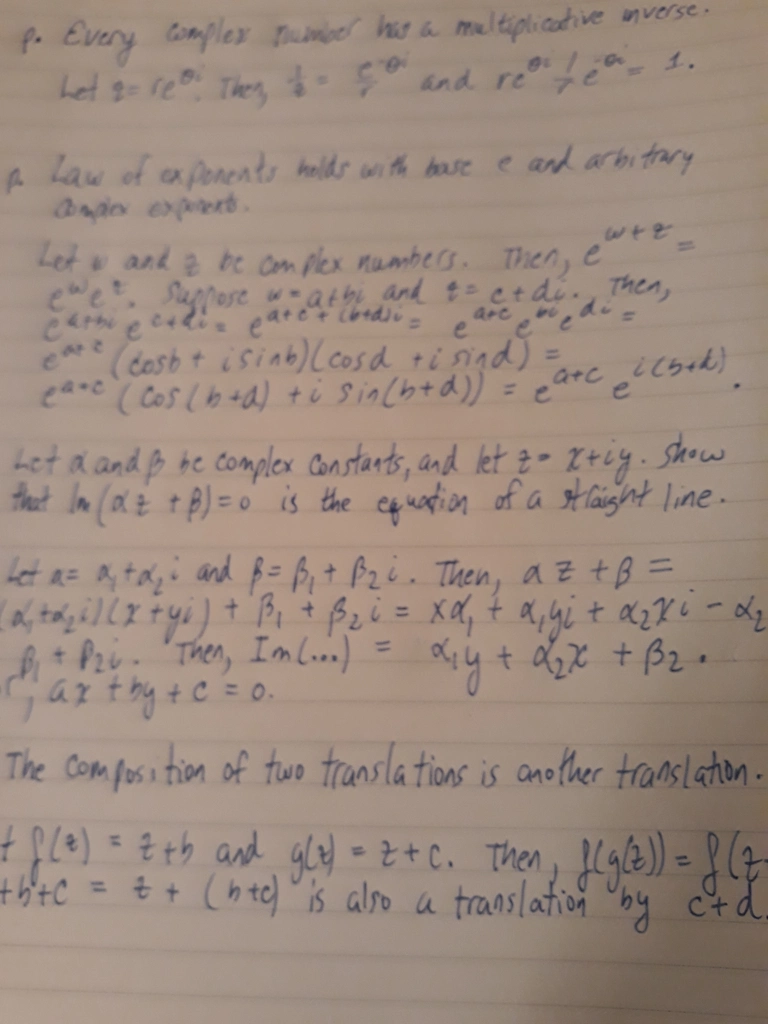 p. Every complex number has a multiplicative inverse.
Let z = re^θi. Then, 1/z = e^-θi/r and re^θi 1/r e^-θi = 1.
p. Law of exponents holds with base e and arbitrary
complex exponents.
Let w and z be complex numbers. Then, e^w+z =
e^w e^z. Suppose w = a+bi and z = c+di. Then,
e^a+bi e^c+di = e^a+c+(b+d)i = e^a+c e^bi e^di =
e^a+c (cosb + i sinb)(cosd + i sind) =
e^a+c (cos(b+d) + i sin(b+d)) = e^a+c e^i(b+d).
Let α and β be complex constants, and let z = x+iy. Show
that Im(αz + β)=0 is the equation of a straight line.
Let α = α₁+α₂i and β = β₁ + β₂i. Then, αz + β =
(α₁+α₂i)(x+yi) + β₁ + β₂i = xα₁ + α₁yi + α₂xi - α₂
β₁ + β₂i. Then, Im(...) = α₁y + α₂x + β₂.
r, ax + by + c = 0.
The composition of two translations is another translation.
t f(z) = z+b and g(z) = z+c. Then, f(g(z)) = f(z
+b+c = z + (b+c) is also a translation by c+d.